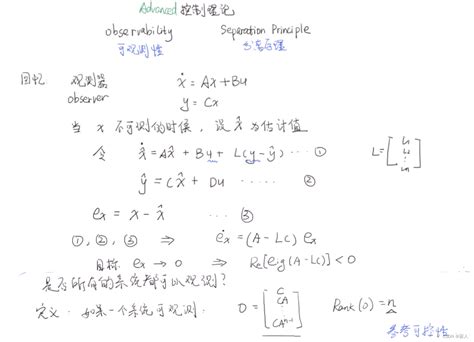 Advanced 控制理论
observability Separation Principle
可观测性 分离原理
回忆 观测器 ẋ = Ax + Bu
observer y = Cx
当 x 不可测的时候，设 x̂ 为估计值
令 x̂̇ = Ax̂ + Bu + L(y-ŷ) ··· ① L = [
ŷ = Cx̂ + Du ····· ②
eₓ = x - x̂ ··· ③
①, ②, ③ ⇒ ėₓ = (A - LC) eₓ
目标 eₓ → 0 ⇒ Re[eig(A-LC)] < 0
是否所有的系统都可以观测？
定义：如果一个系统可观测. O = [C CA ⋮ CAⁿ⁻¹] Rank(O) = n
参考可控性